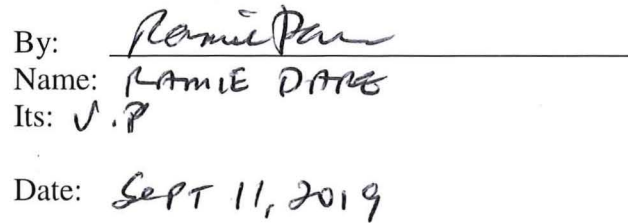 By: Ramie Dare
Name: RAMIE DARE
Its: V.P
Date: SEPT 11, 2019